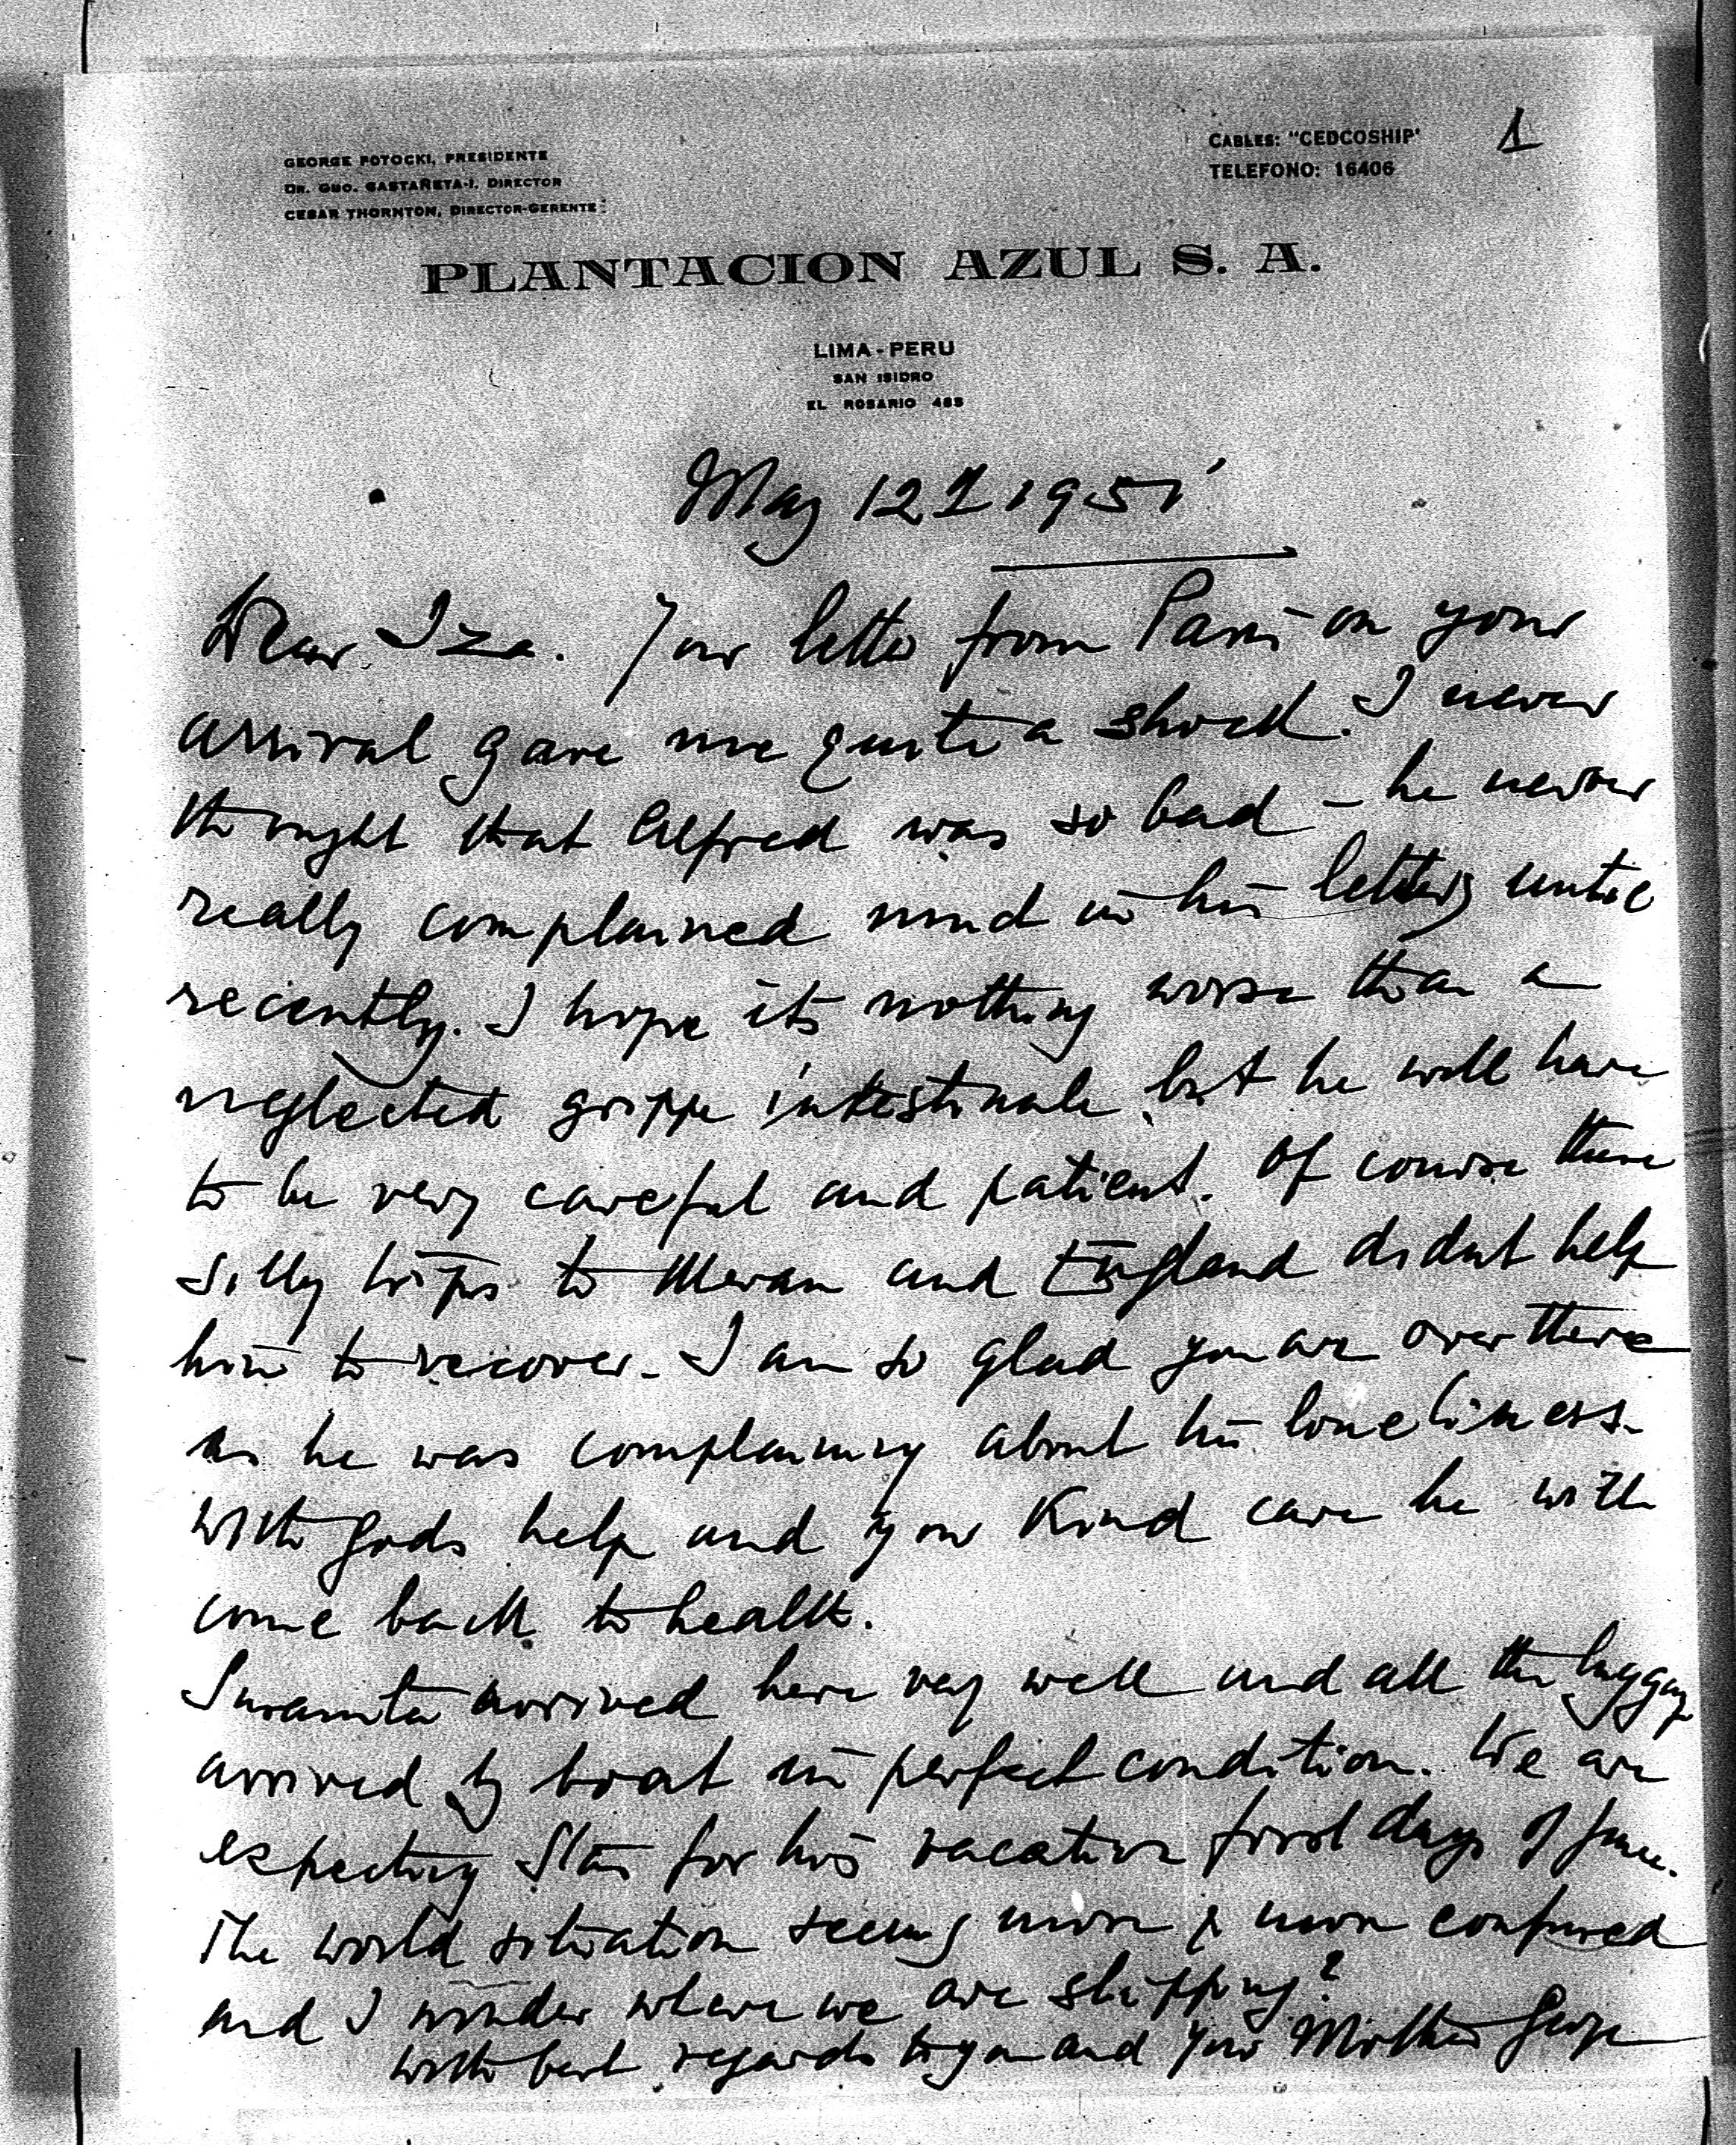 1
GEORGE POTOCKI, PRESIDENTE
DR. GMO. CASTAÑETA-I. DIRECTOR
CESAR THORNTON, DIRECTOR-GERENTE
CABLES: "CEDCOSHIP"
TELEFONO: 16406
PLANTACION AZUL S. A.
LIMA - PERU
SAN ISIDRO
EL ROSARIO 483
May 12 1951
Dear Iza. Your letter from Paris on your
arrival gave me quite a shock. I never
thought that Alfred was so bad – he never
really complained in his letters until
recently. I hope its nothing worse than a
neglected grippe intestinale but he will have
to be very careful and patient. Of course these
silly trips to Meran and England didnt help
him to recover. I am so glad you are over there
as he was complaining about his loneliness.
With gods help and your kind care he will
come back to health.
arrived here very well and all the luggage
arrived by boat in perfect condition. We are
expecting Stas for his vacation first days of June.
The world situation seems more & more confused
and I wonder where we are slipping?
With best regards to you and your Mother George